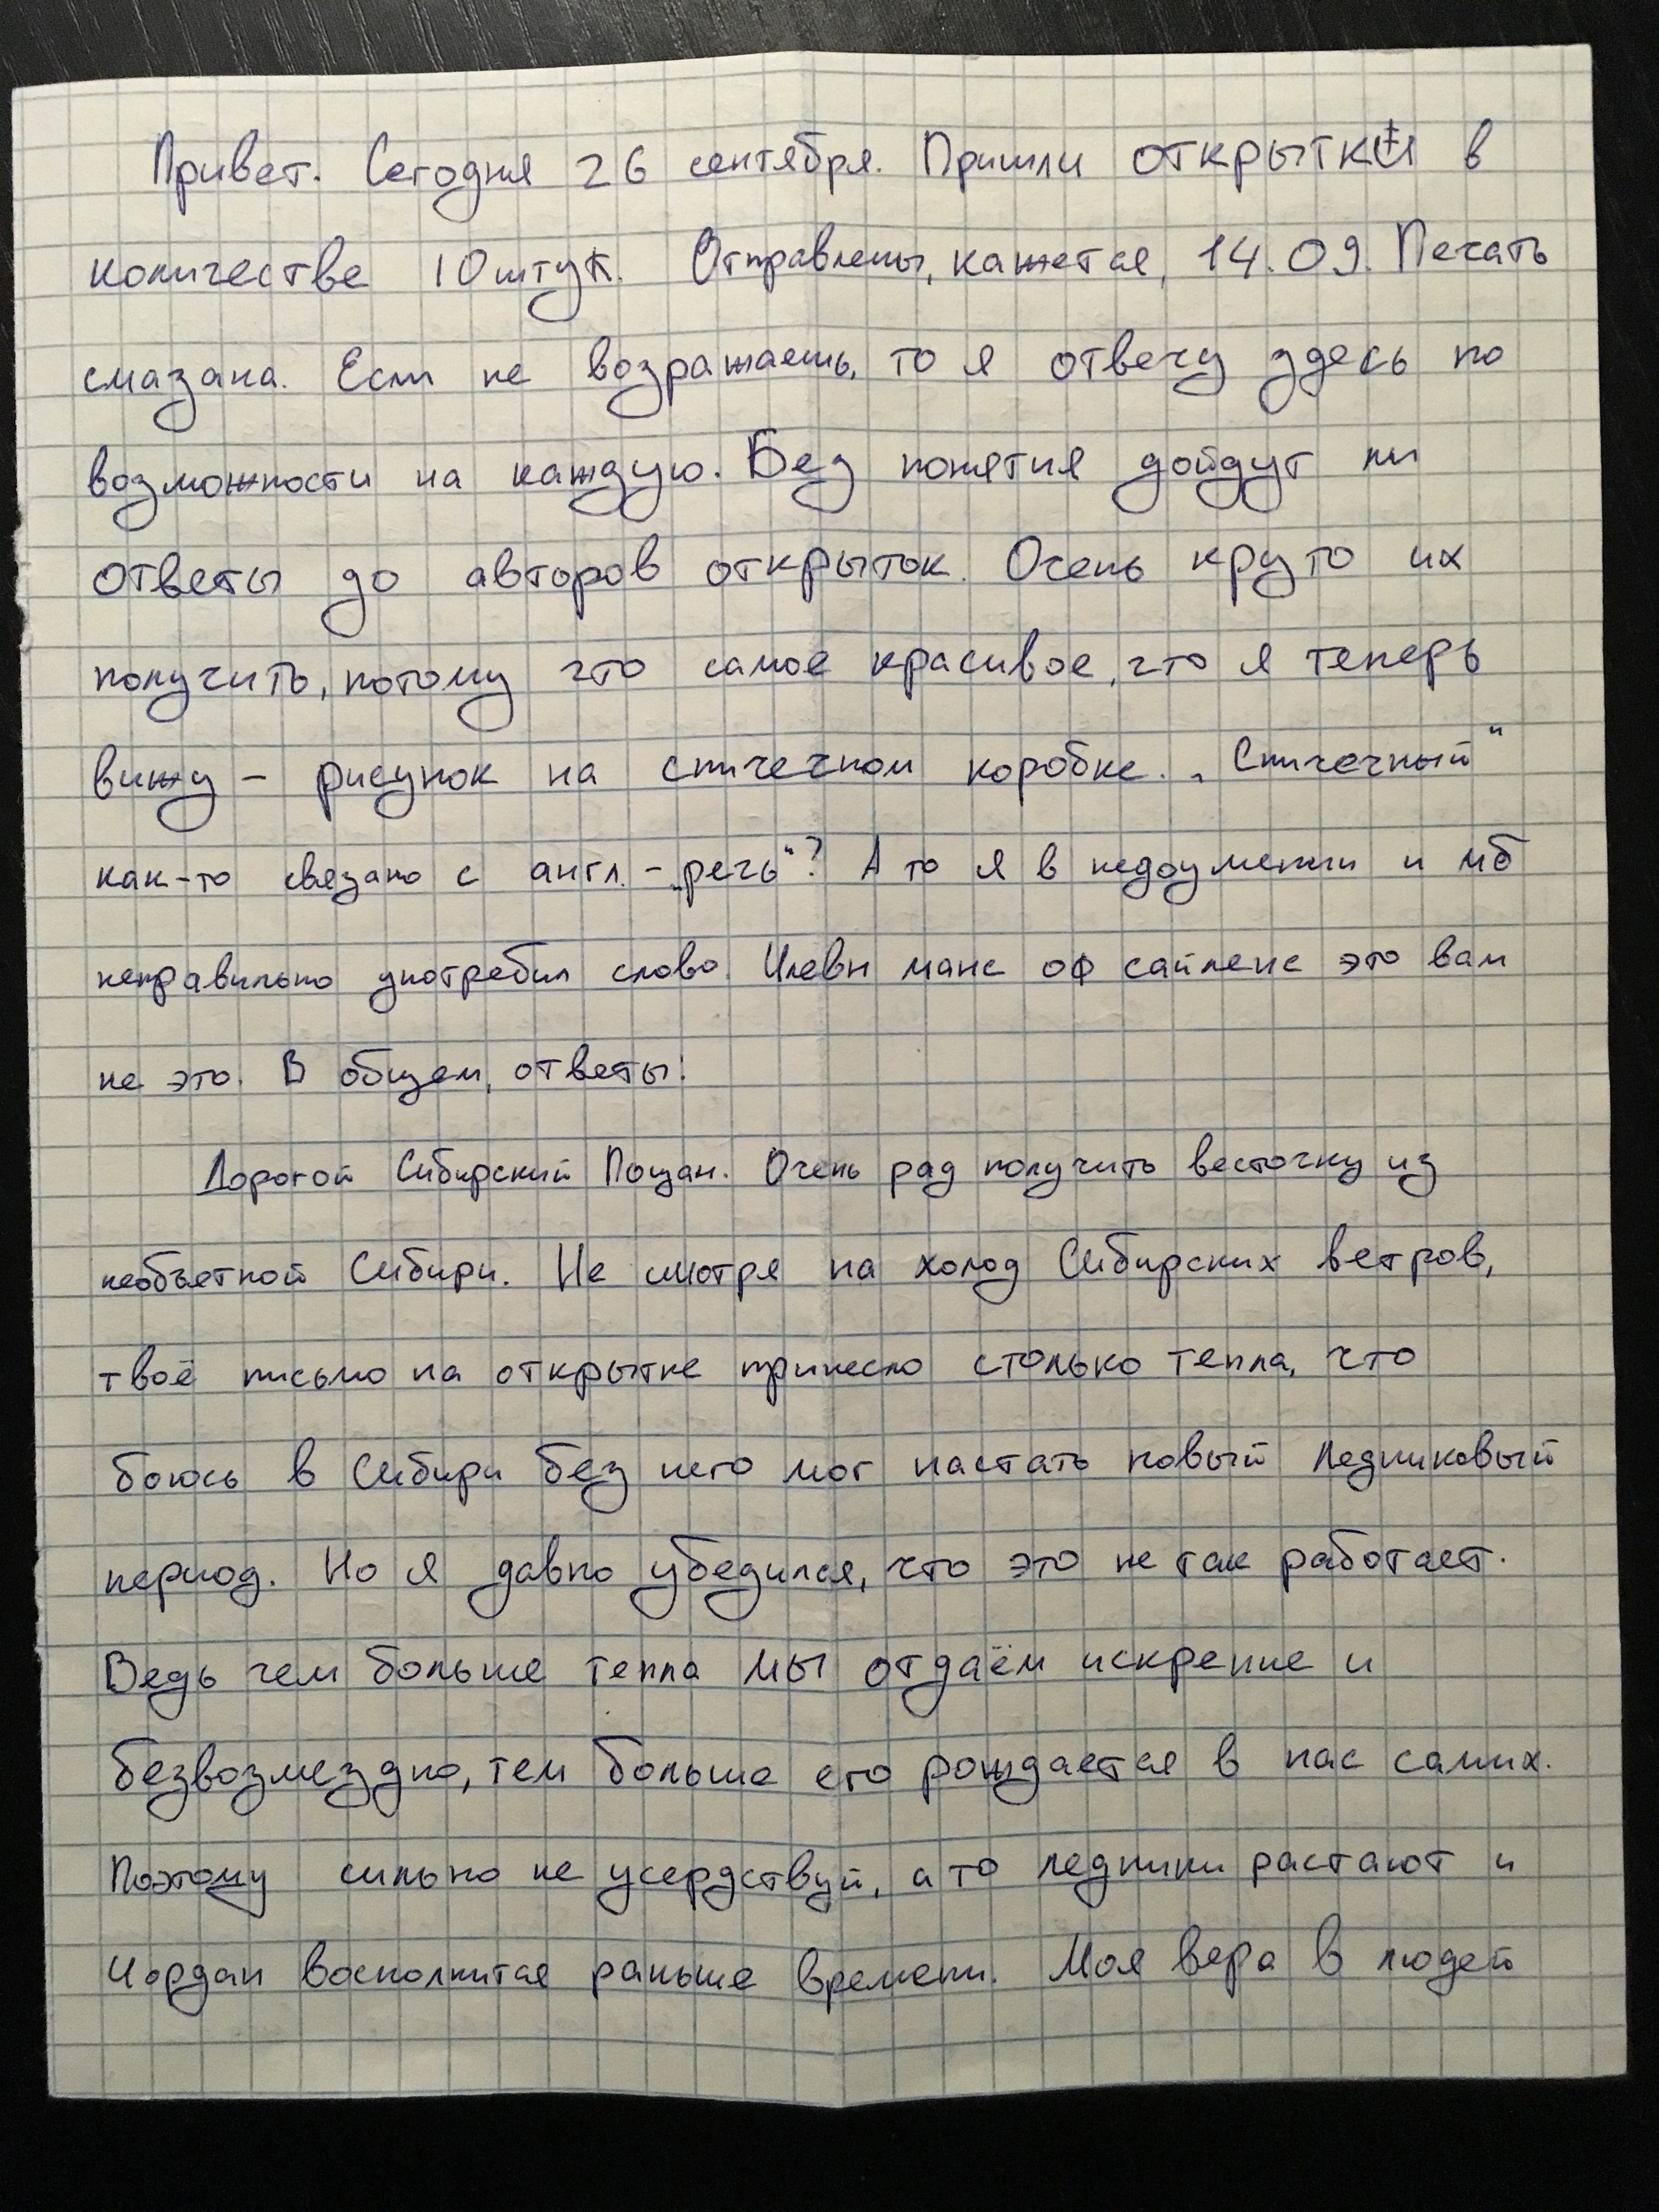 Привет. Сегодня 26 сентября. Пришли открытки в
количестве 10 штук. Отправлены, кажется, 14.09. Печать
смазана. Если не возражаешь, то я отвечу здесь по
возможности на каждую. Без понятия дойдут ли
ответы до авторов открыток. Очень круто их
получить, потому что самое красивое, что я теперь
вижу - рисунок на спичечном коробке. „Спичечный“
как-то связано с англ. - „речь“? А то я в недоумении и мб
неправильно употребил слово. Илевн манс оф сайленс это вам
не это. В общем, ответы:
Дорогой Сибирский Поцан. Очень рад получить весточку из
необъетной Сибири. Не смотря на холод Сибирских ветров,
твоё письмо на открытке принесло столько тепла, что
боюсь в Сибири без него мог настать новый ледниковый
период. Но я давно убедился, что это не так работает.
Ведь чем больше тепла мы отдаём искренне и
безвозмездно, тем больше его рождается в нас самих.
Поэтому сильно не усердствуй, а то ледники растают и
Иордан восполнится раньше времени. Моя вера в людей